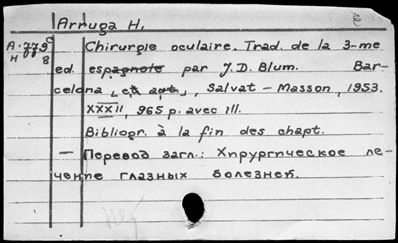 Arruga H.
A-779 Chirurgie oculaire. Trad. de la 3-me
H 8 ed. espagnole par J. D. Blum. Bar-
celona, et apt., Salvat – Masson, 1953.
XXXII, 965 p. avec ill.
Bibliogr. à la fin des chapt.
— Перевод загл.: Хирургическое ле-
чение глазных болезней.